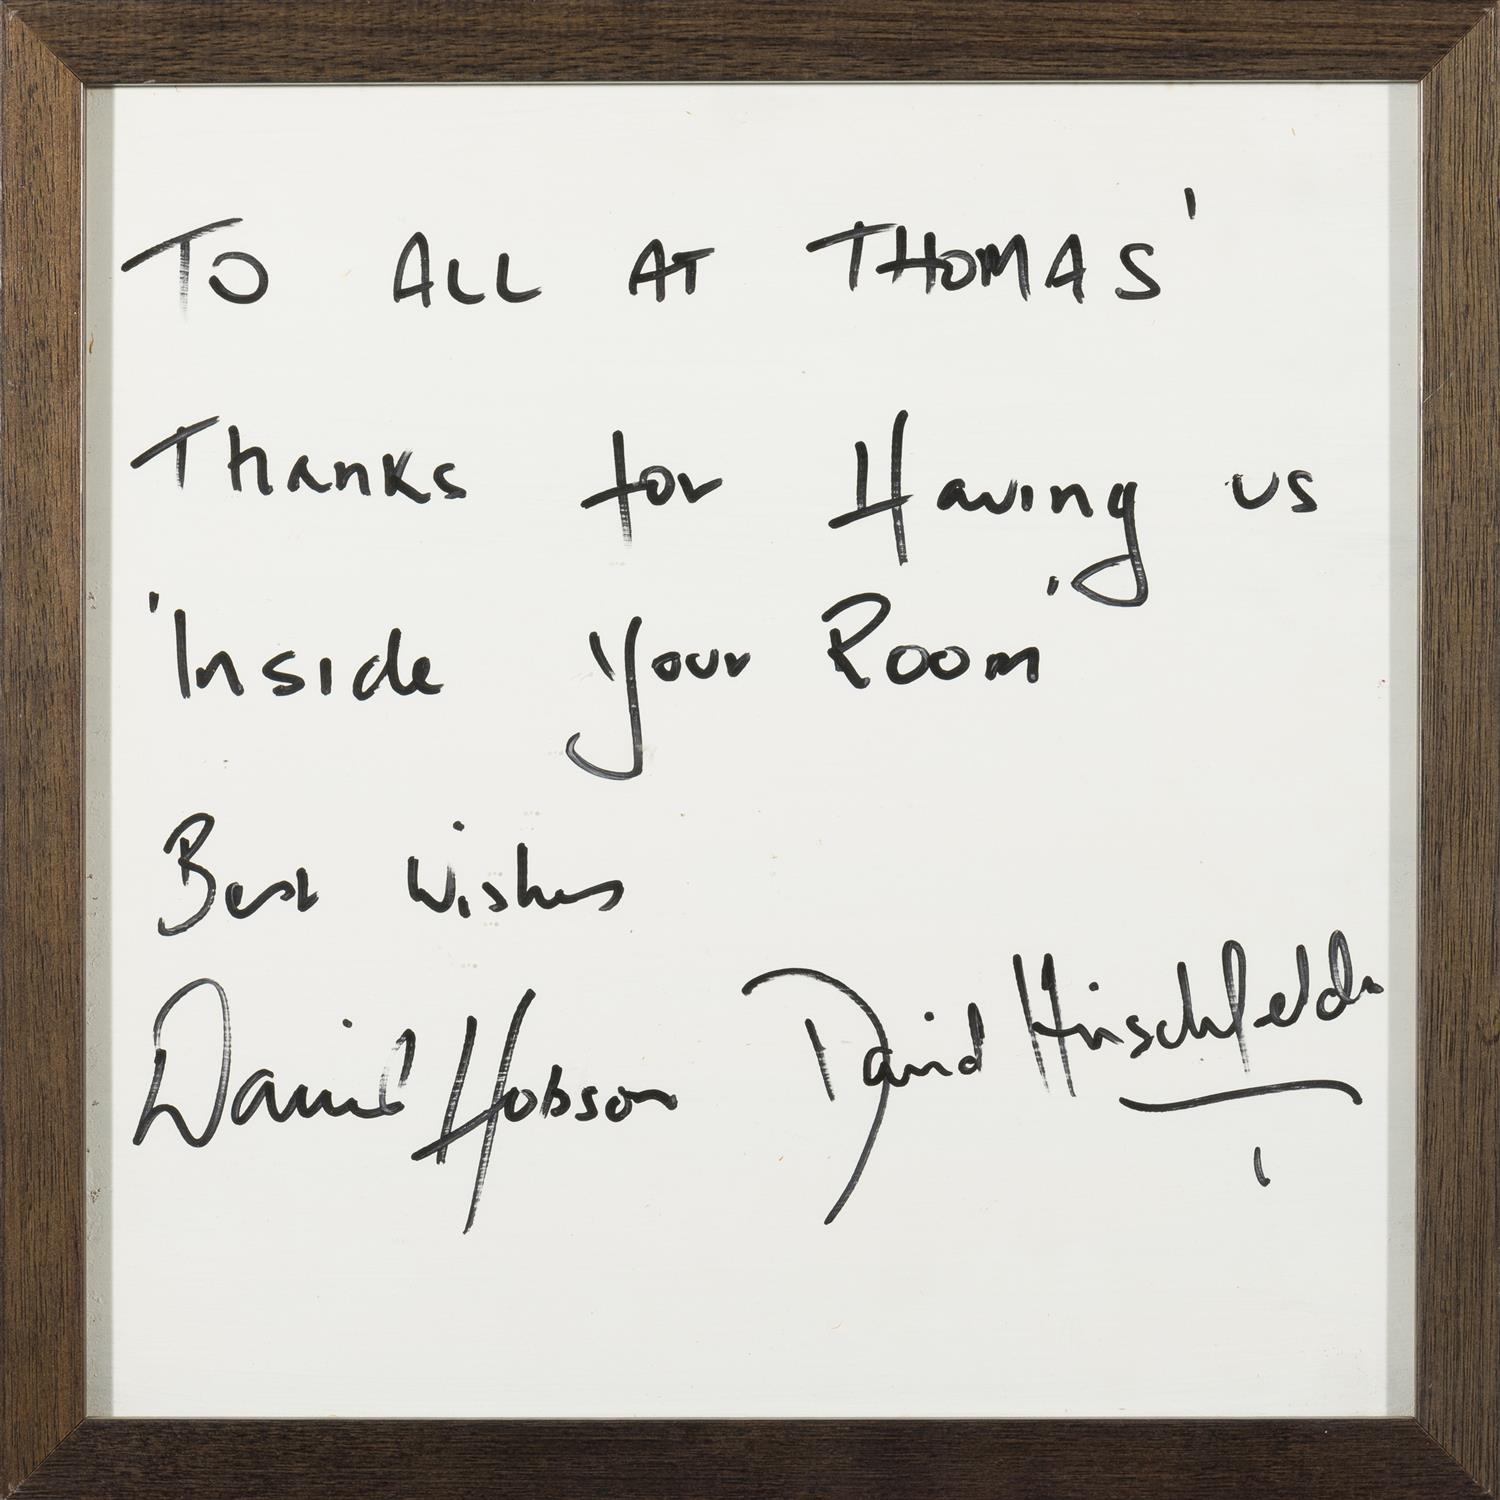 TO ALL AT THOMAS'
Thanks for Having us
'Inside Your Room'
Best Wishes
David Hobson David Hirschfelder